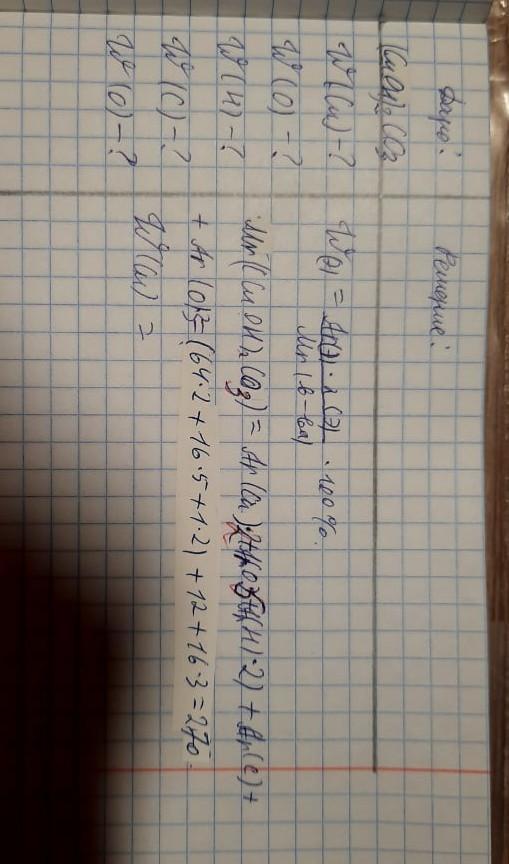 Дано:
(CuOH)₂CO₃
W(Cu) - ?
W(O) - ?
W(H) - ?
W(C) - ?
W(O) - ?
Решение:
W(э) = Ar(э) · i(э) / Mr(в-ва) · 100%.
Mr(CuOH)₂CO₃) = Ar(Cu) (H) · 2) + Ar(C) +
+ Ar(O)·3 = (64·2 + 16·5 + 1·2) + 12 + 16·3 = 270.
W(Cu) =